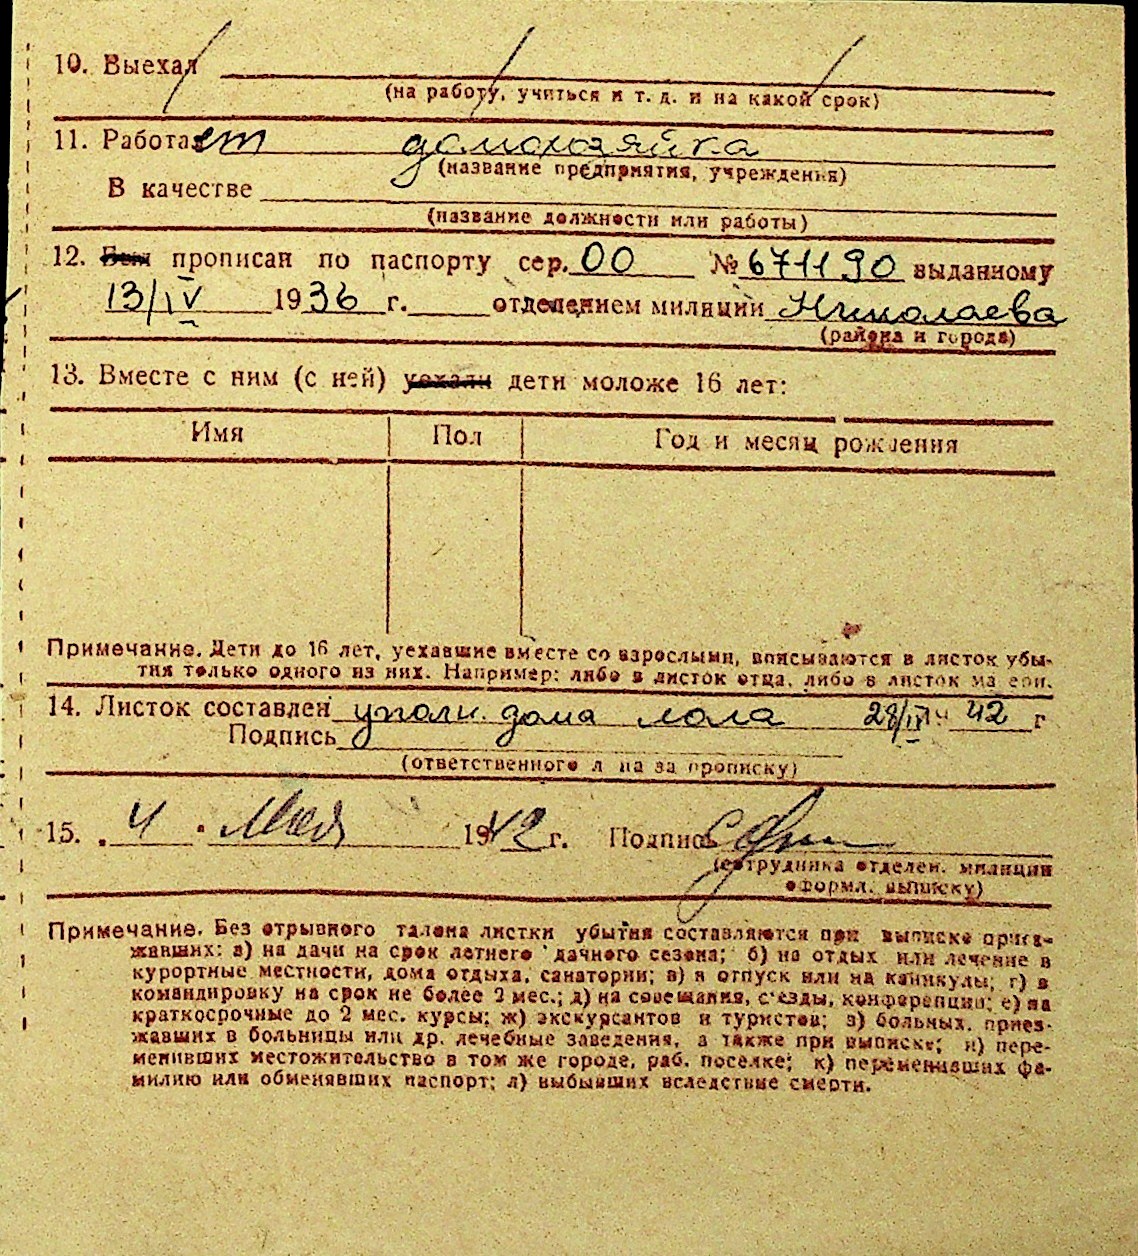 10. Выехал
(на работу, учиться и т. д. и на какой срок)
11. Работает домохозяйка
(название предприятия, учреждения)
В качестве
(название должности или работы)
12. Был прописан по паспорту сер. 00 № 671190 выданному
13/IV 1936 г. отделением милиции Николаева
(района и города)
13. Вместе с ним (с ней) уехали дети моложе 16 лет:
Имя Пол Год и месяц рождения
Примечание. Дети до 16 лет, уехавшие вместе со взрослыми, вписываются в листок убы-
тия только одного из них. Например: либо в листок отца, либо в листок матери.
14. Листок составлен уполн. дома 28/IV 1942 г
Подпись
(ответственного лица за прописку)
15. 4 • Мая 1942 г. Подпись
(сотрудника отделен. милиции
оформл. выписку)
Примечание. Без отрывного талона листки убытия составляются при выписке приез-
жавших: а) на дачи на срок летнего дачного сезона; б) на отдых или лечение в
курортные местности, дома отдыха, санатории; в) в отпуск или на каникулы; г) в
командировку на срок не более 2 мес.; д) на совещания, съезды, конференции; е) на
краткосрочные до 2 мес. курсы; ж) экскурсантов и туристов; з) больных, приез-
жавших в больницы или др. лечебные заведения, а также при выписке; и) пере-
менивших местожительство в том же городе, раб. поселке; к) переменивших фа-
милию или обменявших паспорт; л) выбывших вследствие смерти.